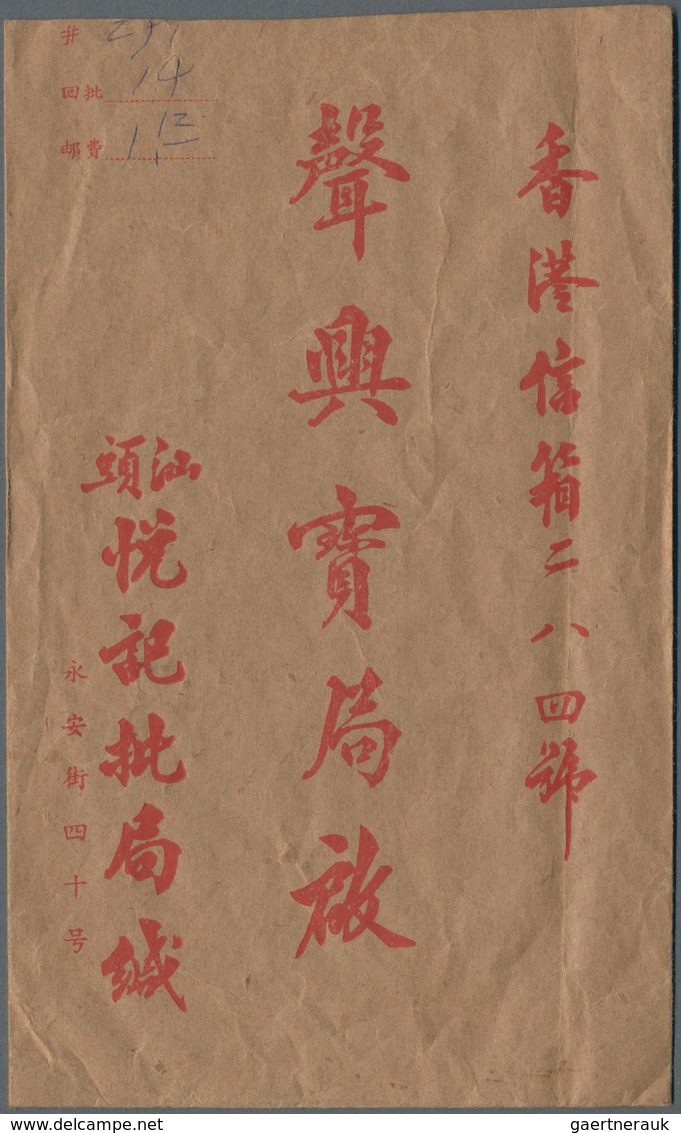 香港信箱二八四號
聲興寶局啟
汕頭
悦記批局緘
永安街四十号
井
回批 14
邮費 1 12
delcampe.net
gaertnerauk